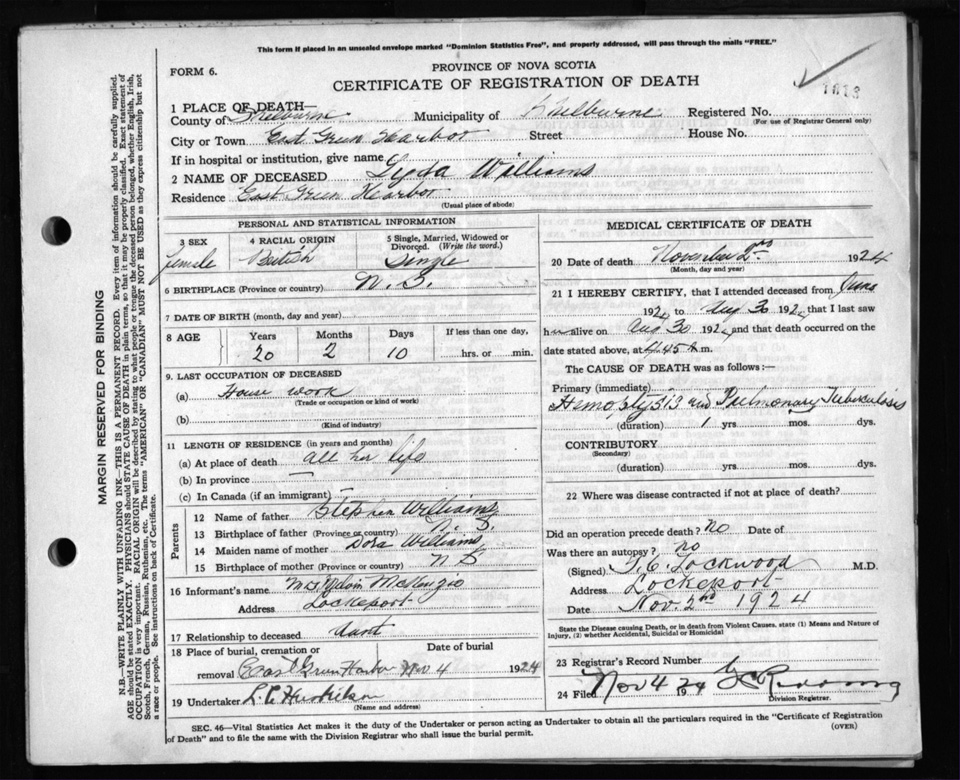 This form if placed in an unsealed envelope marked "Dominion Statistics Free", and properly addressed, will pass through the mails "FREE."
FORM 6.
PROVINCE OF NOVA SCOTIA
CERTIFICATE OF REGISTRATION OF DEATH
1013
1 PLACE OF DEATH—
County of Shelburne Municipality of Shelburne Registered No.
(For use of Registrar General only)
City or Town East Green Harbor Street House No.
If in hospital or institution, give name
2 NAME OF DECEASED Lyda Williams
Residence East Green Harbor
(Usual place of abode)
PERSONAL AND STATISTICAL INFORMATION
3 SEX 4 RACIAL ORIGIN 5 Single, Married, Widowed or Divorced. (Write the word.)
female British Single
6 BIRTHPLACE (Province or country) N. S.
7 DATE OF BIRTH (month, day and year)
8 AGE Years Months Days If less than one day,
20 2 10 hrs. or min.
9. LAST OCCUPATION OF DECEASED
(a) House work
(Trade or occupation or kind of work)
(b)
(Kind of industry)
11 LENGTH OF RESIDENCE (in years and months)
(a) At place of death all her life
(b) In province —
(c) In Canada (if an immigrant) —
Parents
12 Name of father Stephen Williams
13 Birthplace of father (Province or country) N. S.
14 Maiden name of mother Dora Williams
15 Birthplace of mother (Province or country) N S
16 Informant's name Mrs McKenzie
Address Lockeport
17 Relationship to deceased Aunt
18 Place of burial, cremation or Date of burial
removal East Green Harbor Nov 4 1924
19 Undertaker
(Name and address)
MEDICAL CERTIFICATE OF DEATH
20 Date of death November 2nd 1924
(Month, day and year)
21 I HEREBY CERTIFY, that I attended deceased from June
1924 to Aug 30 1924 that I last saw
h alive on Aug 30 1924 and that death occurred on the
date stated above, at 4.45 m.
The CAUSE OF DEATH was as follows:—
Primary (immediate)
Hemoptysis and Pulmonary Tuberculosis
(duration) 1 yrs. mos. dys.
CONTRIBUTORY
(Secondary)
(duration) yrs. mos. dys.
22 Where was disease contracted if not at place of death?
Did an operation precede death? No Date of
Was there an autopsy? no
(Signed) Lockwood M.D.
Address Lockeport
Date Nov. 2nd 1924
State the Disease causing Death, or in death from Violent Causes. state (1) Means and Nature of Injury, (2) whether Accidental, Suicidal or Homicidal
23 Registrar's Record Number
24 Filed Nov 4 1924
Division Registrar.
SEC. 46—Vital Statistics Act makes it the duty of the Undertaker or person acting as Undertaker to obtain all the particulars required in the "Certificate of Registration
of Death" and to file the same with the Division Registrar who shall issue the burial permit. (OVER)
MARGIN RESERVED FOR BINDING
N.B.—WRITE PLAINLY WITH UNFADING INK—THIS IS A PERMANENT RECORD. Every item of information should be carefully supplied.
AGE should be stated EXACTLY. PHYSICIANS should STATE CAUSE OF DEATH in plain terms, so that it may be properly classified. Exact statement of
OCCUPATION is very important. RACIAL ORIGIN will be described by stating to what people or tongue the deceased person belonged, whether English, Irish,
Scotch, French, German, Russian, Ruthenian, etc. The terms "AMERICAN" or "CANADIAN" MUST NOT BE USED as they express citizenship but not
a race or people. See instructions on back of Certificate.